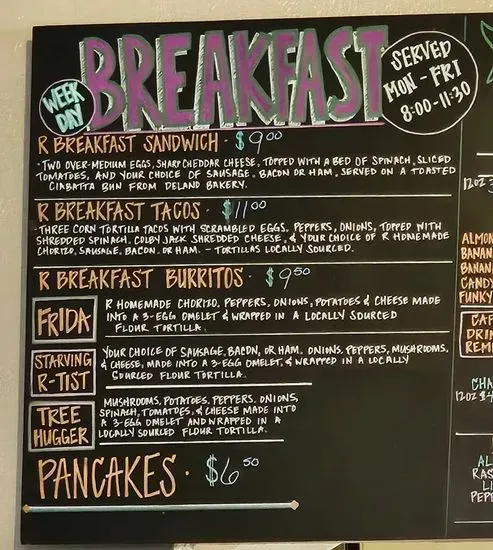 WEEK DAY
BREAKFAST
SERVED
MON - FRI
8:00-11:30
R BREAKFAST SANDWICH · $9.00
· TWO OVER-MEDIUM EGGS, SHARP CHEDDAR CHEESE, TOPPED WITH A BED OF SPINACH, SLICED
TOMATOES, AND YOUR CHOICE OF SAUSAGE, BACON OR HAM, SERVED ON A TOASTED
CIABATTA BUN FROM DELAND BAKERY.
R BREAKFAST TACOS · $11.00
· THREE CORN TORTILLA TACOS WITH SCRAMBLED EGGS, PEPPERS, ONIONS, TOPPED WITH
SHREDDED SPINACH, COLBY JACK SHREDDED CHEESE, & YOUR CHOICE OF R HOMEMADE
CHORIZO, SAUSAGE, BACON, OR HAM. - TORTILLAS LOCALLY SOURCED.
R BREAKFAST BURRITOS · $9.50
FRIDA
R HOMEMADE CHORIZO, PEPPERS, ONIONS, POTATOES & CHEESE MADE
INTO A 3-EGG OMELET & WRAPPED IN A LOCALLY SOURCED
FLOUR TORTILLA.
STARVING
R-TIST
YOUR CHOICE OF SAUSAGE, BACON, OR HAM. ONIONS, PEPPERS, MUSHROOMS,
& CHEESE, MADE INTO A 3-EGG OMELET, & WRAPPED IN A LOCALLY
SOURCED FLOUR TORTILLA.
TREE
HUGGER
MUSHROOMS, POTATOES, PEPPERS, ONIONS,
SPINACH, TOMATOES, & CHEESE MADE INTO
A 3-EGG OMELET AND WRAPPED IN A
LOCALLY SOURCED FLOUR TORTILLA.
PANCAKES · $6.50
12OZ
ALMON
BANAN
BANAN
CANDY
FUNKY
CAF
DRIN
REM
CHA
12OZ $4
AL
RAS
LI
PEPP